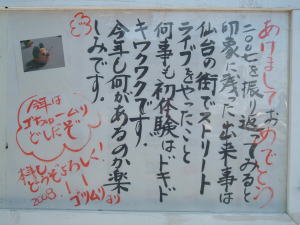 あけましておめでとう
二〇〇七を振り返ってみると
印象に残った出来事は
仙台の街でストリート
ライブをやったこと
何事も初体験はドキド
キワクワクです。
今年も何があるのか楽
しみです。
今年は
ゴちゅ〜ムリ
どしだぞ
本年も
どうぞよろしく!
2008
ゴツムリより